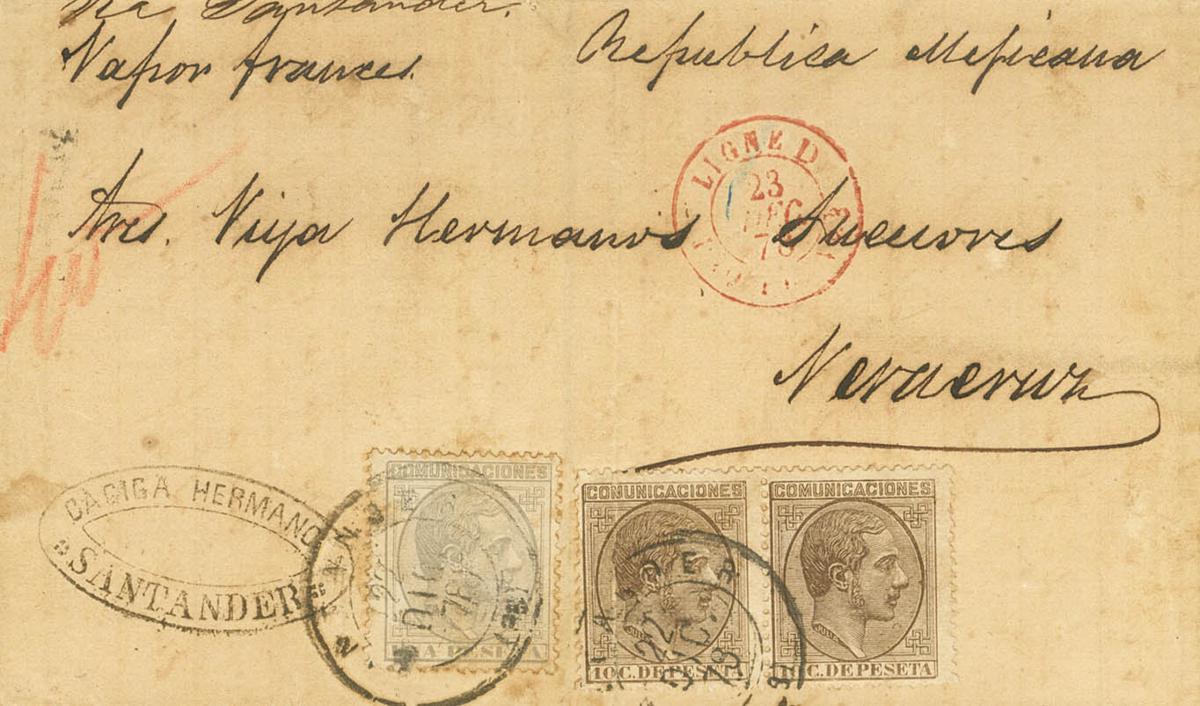 Via Santander.
Vapor frances.
Republica Mejicana
LIGNE D
23
DEC
78
Sres. Viya Hermanos Sucesores
Veracruz
CAGIGA HERMANO
SANTANDER
COMUNICACIONES
DIC
78
PESETA
COMUNICACIONES
10 C. DE PESETA
COMUNICACIONES
10 C. DE PESETA
22
DIC.
78